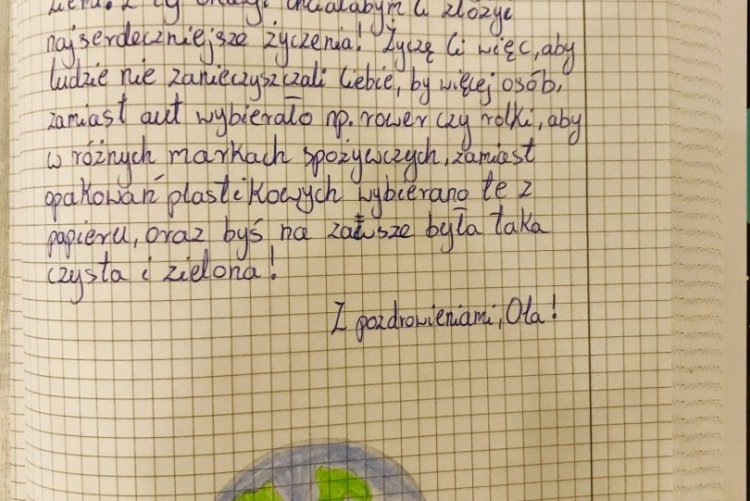 Ziemi. Z tej okazji chciałabym Ci złożyć
najserdeczniejsze życzenia! Życzę Ci więc, aby
ludzie nie zanieczyszczali Ciebie, by więcej osób,
zamiast aut wybierało np. rower czy rolki, aby
w różnych markach spożywczych, zamiast
opakowań plastikowych wybierano te z
papieru, oraz byś na zawsze była taka
czysta i zielona!
Z pozdrowieniami, Ola!